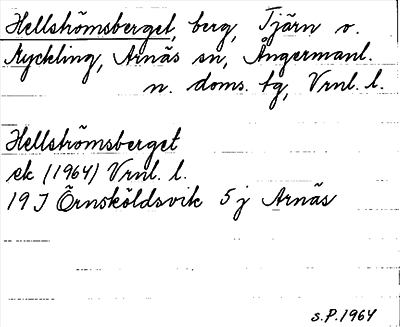 Hellströmsberget, berg, Tjärn o.
Myckling, Arnäs sn, Ångermanl.
n. doms. tg, Vrnl. l.
Hellströmsberget
ek (1964) Vrnl. l.
19 J Örnsköldsvik 5 j Arnäs
S.P. 1964